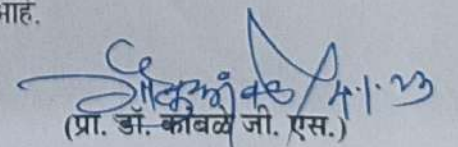 आहे.
4.1.23
(प्रा. डॉ. कांबळे जी. एस.)